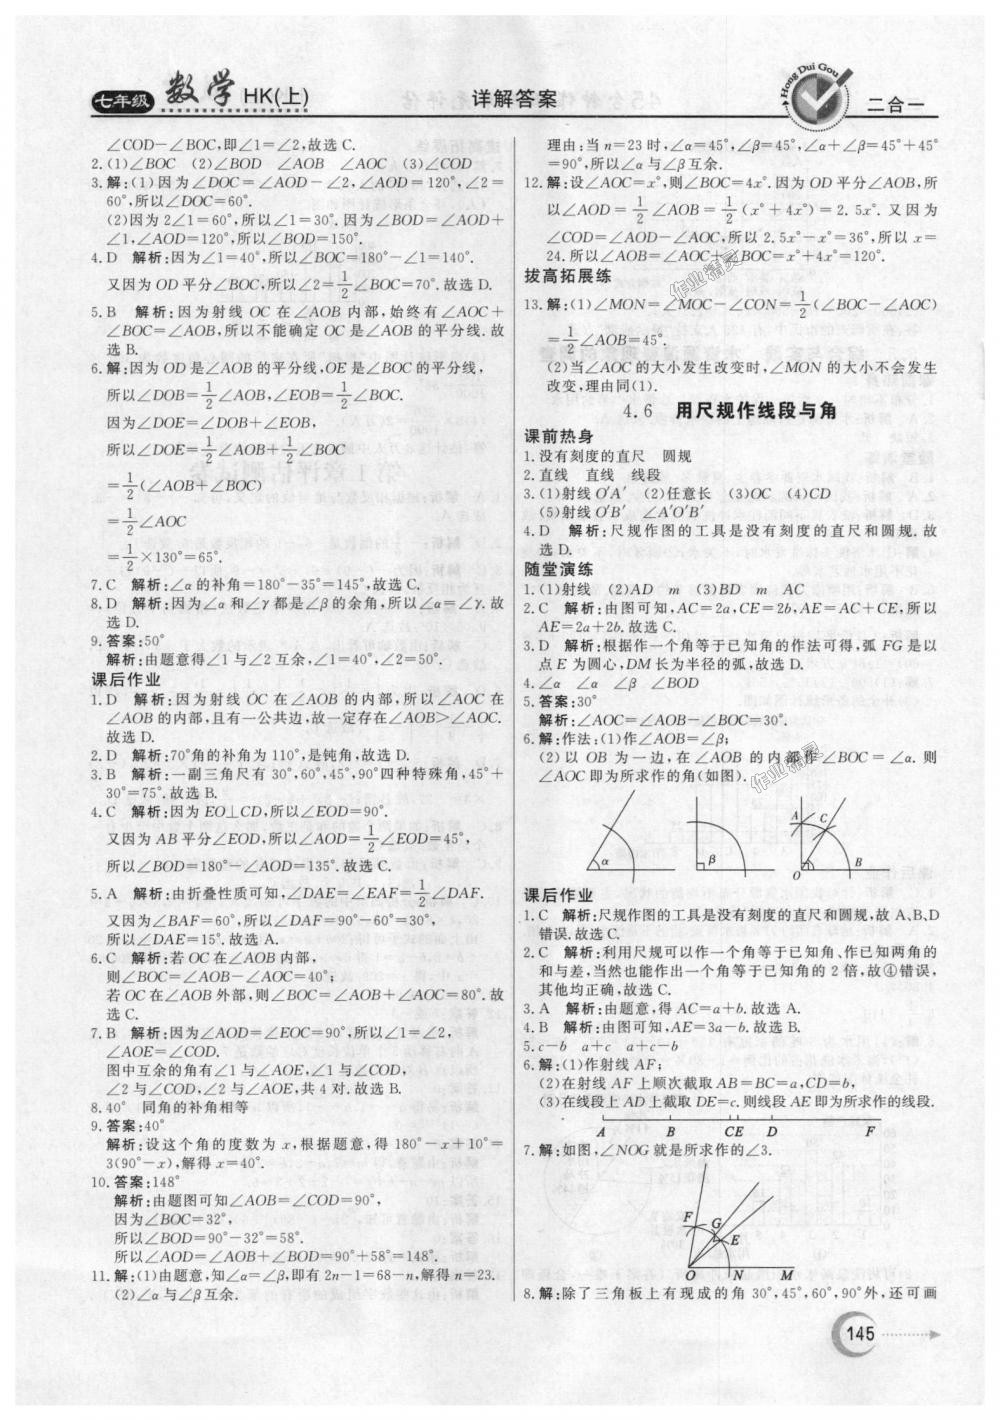 七年级 数学 HK(上)
详解答案
Hong Dui Gou
二合一
∠COD－∠BOC,即∠1＝∠2,故选C.
2.(1)∠BOC (2)∠BOD ∠AOB ∠AOC (3)∠COD
3.解:(1)因为∠DOC＝∠AOD－∠2,∠AOD＝120°,∠2＝
60°,所以∠DOC＝60°.
(2)因为2∠1＝60°,所以∠1＝30°.因为∠BOD＝∠AOD＋
∠1,∠AOD＝120°,所以∠BOD＝150°.
4.D 解析:因为∠1＝40°,所以∠BOC＝180°－∠1＝140°.
又因为OD平分∠BOC,所以∠2＝1/2∠BOC＝70°.故选D.
5.B 解析:因为射线OC在∠AOB内部,始终有∠AOC＋
∠BOC＝∠AOB,所以不能确定OC是∠AOB的平分线.故
选B.
6.解:因为OD是∠AOB的平分线,OE是∠BOC的平分线,
所以∠DOB＝1/2∠AOB,∠EOB＝1/2∠BOC.
因为∠DOE＝∠DOB＋∠EOB,
所以∠DOE＝1/2∠AOB＋1/2∠BOC
＝1/2(∠AOB＋∠BOC)
＝1/2∠AOC
＝1/2×130°＝65°.
7.C 解析:∠α的补角＝180°－35°＝145°,故选C.
8.D 解析:因为∠α和∠γ都是∠β的余角,所以∠α＝∠γ.故
选D.
9.答案:50°
解析:由题意得∠1与∠2互余,∠1＝40°,∠2＝50°.
课后作业
1.D 解析:因为射线OC在∠AOB的内部,所以∠AOC在
∠AOB的内部,且有一公共边,故一定存在∠AOB＞∠AOC.
故选D.
2.D 解析:70°角的补角为110°,是钝角,故选D.
3.B 解析:一副三角尺有30°,60°,45°,90°四种特殊角,45°＋
30°＝75°.故选B.
4.C 解析:因为EO⊥CD,所以∠EOD＝90°.
又因为AB平分∠EOD,所以∠AOD＝1/2∠EOD＝45°,
所以∠BOD＝180°－∠AOD＝135°.故选C.
5.A 解析:由折叠性质可知,∠DAE＝∠EAF＝1/2∠DAF.
又因为∠BAF＝60°,所以∠DAF＝90°－60°＝30°,
所以∠DAE＝15°.故选A.
6.C 解析:若OC在∠AOB内部,
则∠BOC＝∠AOB－∠AOC＝40°;
若OC在∠AOB外部,则∠BOC＝∠AOB＋∠AOC＝80°.故
选C.
7.B 解析:因为∠AOD＝∠EOC＝90°,所以∠1＝∠2,
∠AOE＝∠COD.
图中互余的角有∠1与∠AOE,∠1与∠COD,
∠2与∠COD,∠2与∠AOE,共4对.故选B.
8.40° 同角的补角相等
9.答案:40°
解析:设这个角的度数为x,根据题意,得180°－x＋10°＝
3(90°－x),解得x＝40°.
10.答案:148°
解析:由题图可知∠AOB＝∠COD＝90°,
因为∠BOC＝32°,
所以∠BOD＝90°－32°＝58°.
所以∠AOD＝∠AOB＋∠BOD＝90°＋58°＝148°.
11.解:(1)由题意,知∠α＝∠β,即有2n－1＝68－n,解得n＝23.
(2)∠α与∠β互余.
理由:当n＝23时,∠α＝45°,∠β＝45°,∠α＋∠β＝45°＋45°
＝90°,所以∠α与∠β互余.
12.解:设∠AOC＝x°,则∠BOC＝4x°.因为OD平分∠AOB,所
以∠AOD＝1/2∠AOB＝1/2(x°＋4x°)＝2.5x°.又因为
∠COD＝∠AOD－∠AOC,所以2.5x°－x°＝36°,所以x＝
24.所以∠AOB＝∠AOC＋∠BOC＝x°＋4x°＝120°.
拔高拓展练
13.解:(1)∠MON＝∠MOC－∠CON＝1/2(∠BOC－∠AOC)
＝1/2∠AOB＝45°.
(2)当∠AOC的大小发生改变时,∠MON的大小不会发生
改变,理由同(1).
4.6 用尺规作线段与角
课前热身
1.没有刻度的直尺 圆规
2.直线 直线 线段
3.(1)射线O′A′ (2)任意长 (3)OC (4)CD
(5)射线O′B′ ∠A′O′B′
4.D 解析:尺规作图的工具是没有刻度的直尺和圆规.故
选D.
随堂演练
1.(1)射线 (2)AD m (3)BD m AC
2.C 解析:由图可知,AC＝2a,CE＝2b,AE＝AC＋CE,所以
AE＝2a＋2b.故选C.
3.D 解析:根据作一个角等于已知角的作法可得,弧FG是以
点E为圆心,DM长为半径的弧,故选D.
4.∠α ∠α ∠β ∠BOD
5.答案:30°
解析:∠AOC＝∠AOB－∠BOC＝30°.
6.解:作法:(1)作∠AOB＝∠β;
(2)以OB为一边,在∠AOB的内部作∠BOC＝∠α.则
∠AOC即为所求作的角(如图).
α β A C O B
课后作业
1.C 解析:尺规作图的工具是没有刻度的直尺和圆规,故A,B,D
错误.故选C.
2.C 解析:利用尺规可以作一个角等于已知角、作已知两角的
和与差,当然也能作出一个角等于已知角的2倍,故④错误,
其他均正确,故选C.
3.A 解析:由题意,得AC＝a＋b.故选A.
4.B 解析:由图可知,AE＝3a－b.故选A.
5.c－b a＋c a＋c－b
6.解:(1)作射线AF;
(2)在射线AF上顺次截取AB＝BC＝a,CD＝b,
(3)在线段上AD上截取DE＝c.则线段AE即为所求作的线段.
A B CE D F
7.解:如图,∠NOG就是所求作的∠3.
F G E O N M
8.解:除了三角板上有现成的角30°,45°,60°,90°外,还可画
作业精灵
作业精灵
145